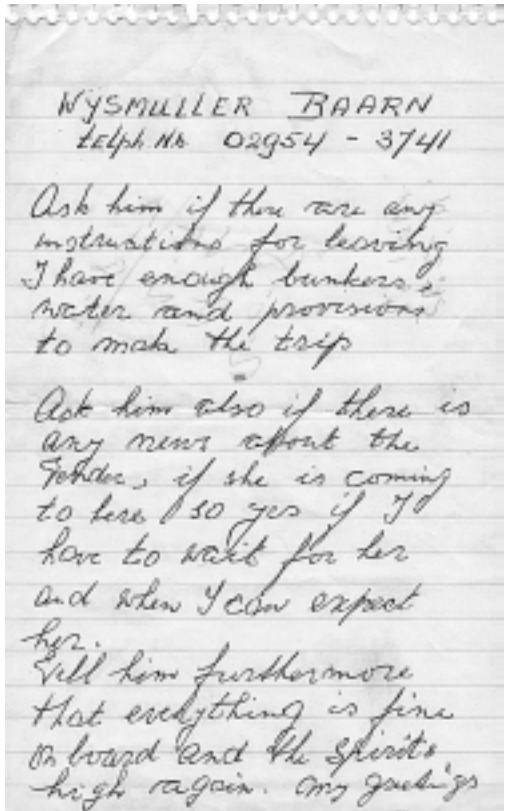 WYSMULLER BAARN
telph. Nb. 02954 - 3741
Ask him if there are any
instructions for leaving
I have enough bunkers,
water and provisions
to make the trip
Ask him also if there is
any news about the
Tender, if she is coming
to here so yes if I
have to wait for her
and when I can expect
her.
Till him furthermore
that everything is fine
on board and the spirits
high again. My greetings